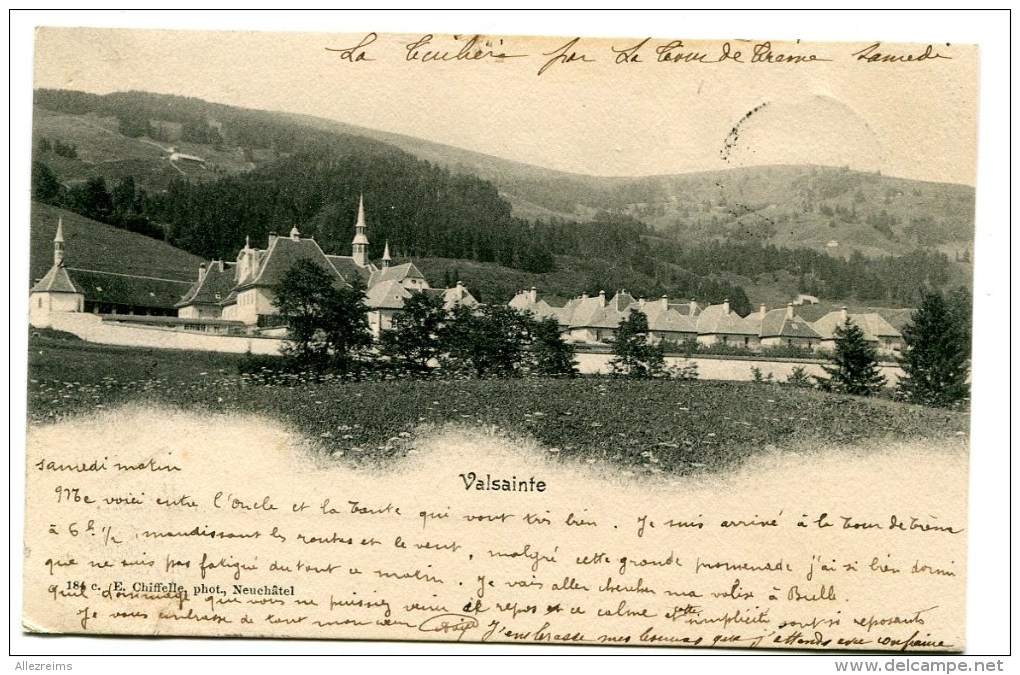 La Tuilière par La Tour de Trême samedi
Valsainte
samedi matin
Me voici entre l'Oncle et la Tante qui vont très bien. Je suis arrivé à la Tour de Trême
à 6h 1/2, maudissant les routes et le vent, malgré cette grande promenade j'ai si bien dormi
que ne suis pas fatigué du tout ce matin. Je vais aller chercher ma valise à Bulle.
184 c. E. Chiffelle, phot., Neuchâtel
Quel dommage que vous ne puissiez venir ce repos et ce calme et simplicité sont si reposants
Je vous embrasse de tout mon cœur
J'embrasse mes que j'attends avec confiance
Allezreims
www.delcampe.net